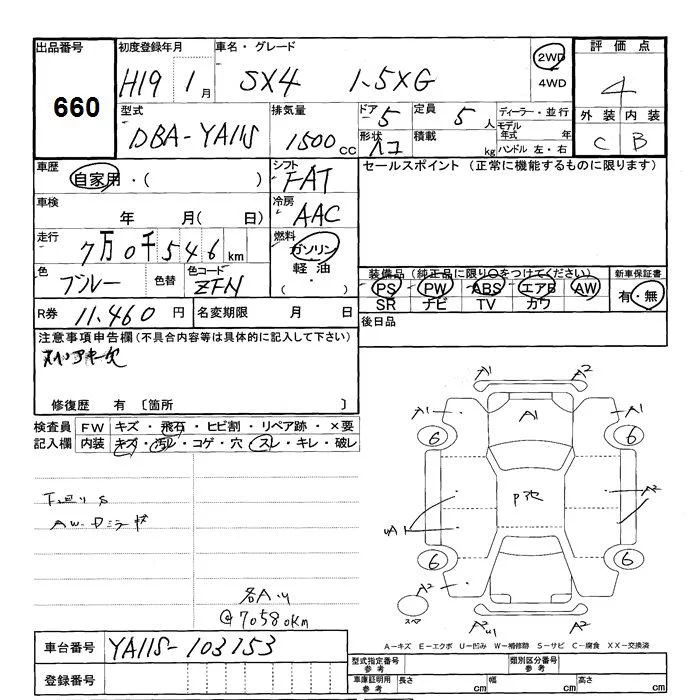 出品番号 初度登録年月 車名・グレード 評価点
660 H19 1月 SX4 1.5XG 2WD 4WD 4
型式 排気量 ドア 定員 ディーラー・並行 外装 内装
DBA-YA11S 1500cc 5 5人 モデル年式 年 C B
形状 積載 kg ハンドル 左・右
車歴 シフト セールスポイント (正常に機能するものに限ります)
自家用・( ) FAT
車検 年 月( 日) 冷房 AAC
走行 7万0千546km 燃料 ガソリン 軽油 ( ・ )
色 ブルー 色替 色コード ZFN
装備品 (純正品に限り○をつけてください) 新車保証書
PS PW ABS エアB AW 有・無
SR ナビ TV カワ
R券 11,460円 名変期限 月 日 後日品
注意事項申告欄(不具合内容等は具体的に記入して下さい)
修復歴 有 〔箇所 〕
検査員 FW キズ・飛石・ヒビ割・リペア跡・×要
記入欄 内装 キズ・汚レ・コゲ・穴 スレ・キレ・破レ
A1 A2
A1 A1 A1
6 6
下廻りS
AW・Dニキズ
P改
A2
uA1
6 6
A2
@70580km
A2 U1 A2
A-キズ E-エクボ U-凹み W-補修跡 S-サビ C-腐食 XX-交換済
車台番号 YA11S-103153
登録番号
型式指定番号 参考 類別区分番号 参考
車庫証明用 参考 長さ cm 幅 cm 高さ cm